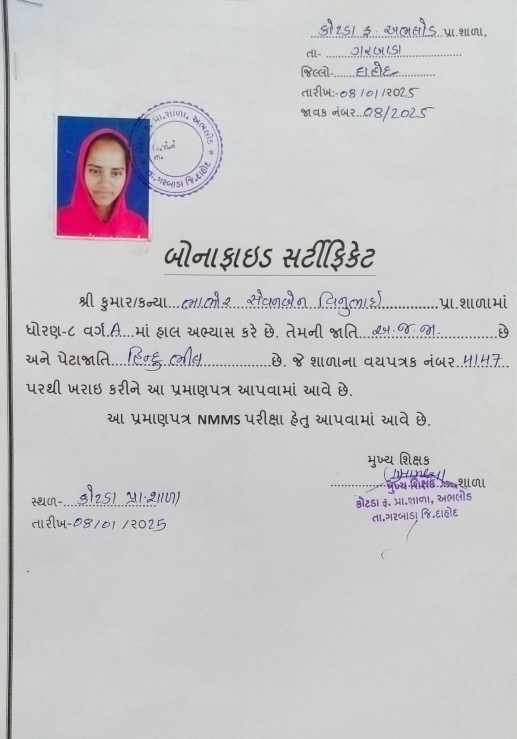 કોટડા ફ. અભલોડ પ્રા.શાળા,
તા- ગરબાડા
જિલ્લો- દાહોદ
તારીખ:-08/01/૨૦૨5
જાવક નંબર..08/2025
પ્રા.શાળા, અભલોડ
તા.ગરબાડા જિ.દાહોદ
બોનાફાઇડ સર્ટીફિકેટ
શ્રી કુમાર/કન્યા... ભાભોર સેવનાબેન વિનુભાઇ પ્રા.શાળામાં
ધોરણ-૮ વર્ગ.A...માં હાલ અભ્યાસ કરે છે. તેમની જાતિ... અ.જ.જા. છે
અને પેટાજાતિ... હિન્દુ ભીલ છે. જે શાળાના વયપત્રક નંબર.. 4147..
પરથી ખરાઇ કરીને આ પ્રમાણપત્ર આપવામાં આવે છે.
આ પ્રમાણપત્ર NMMS પરીક્ષા હેતુ આપવામાં આવે છે.
મુખ્ય શિક્ષક
શાળા
મુખ્ય શિક્ષક
કોટડા ફ. પ્રા.શાળા, અભલોડ
તા.ગરબાડા જિ.દાહોદ
સ્થળ- કોટડા પ્રા.શાળા
તારીખ-08/01/૨૦૨5